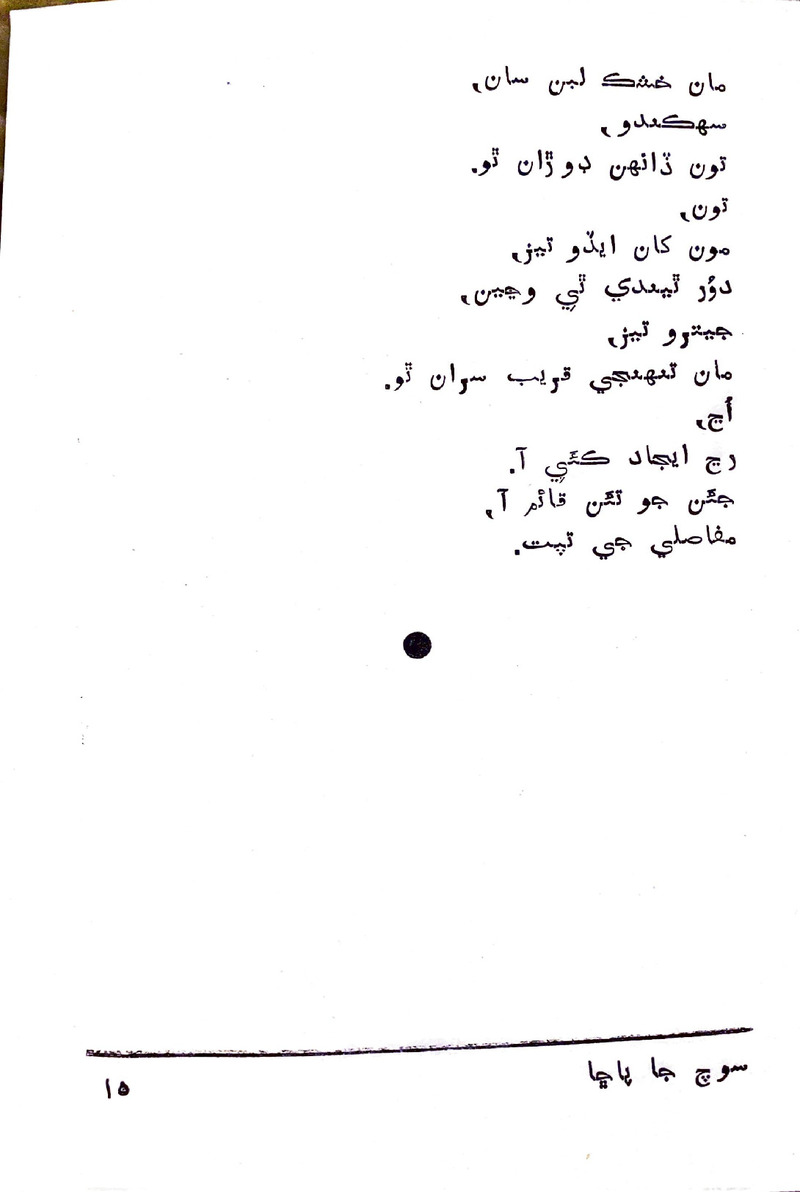 مان خشڪ لبن سان,
سهڪندو,
تون ڏانهن ڊوڙان ٿو.
تون,
مون کان ايڏو تيز,
دؤر ٿيندي ٿي وڃين,
جيترو تيز,
مان تنهنجي قريب سران ٿو.
اُڃ,
رڃ ايجاد ڪئي آ.
جئن جو تئن قائم آ,
مفاصلي جي تپت.
سوچ جا پاڇا
١٥